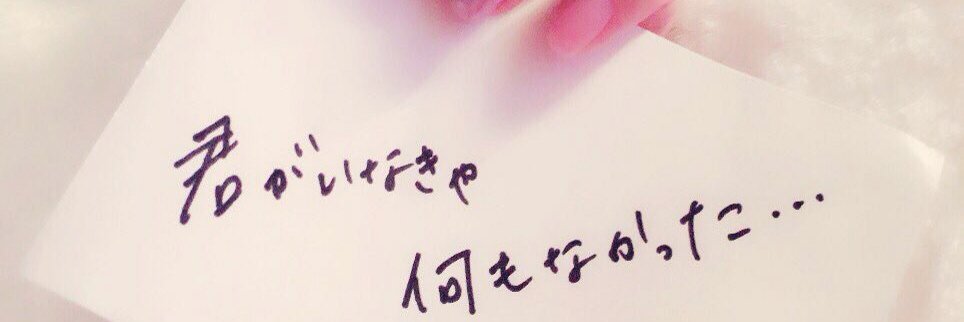 君がいなきゃ
何もなかった…